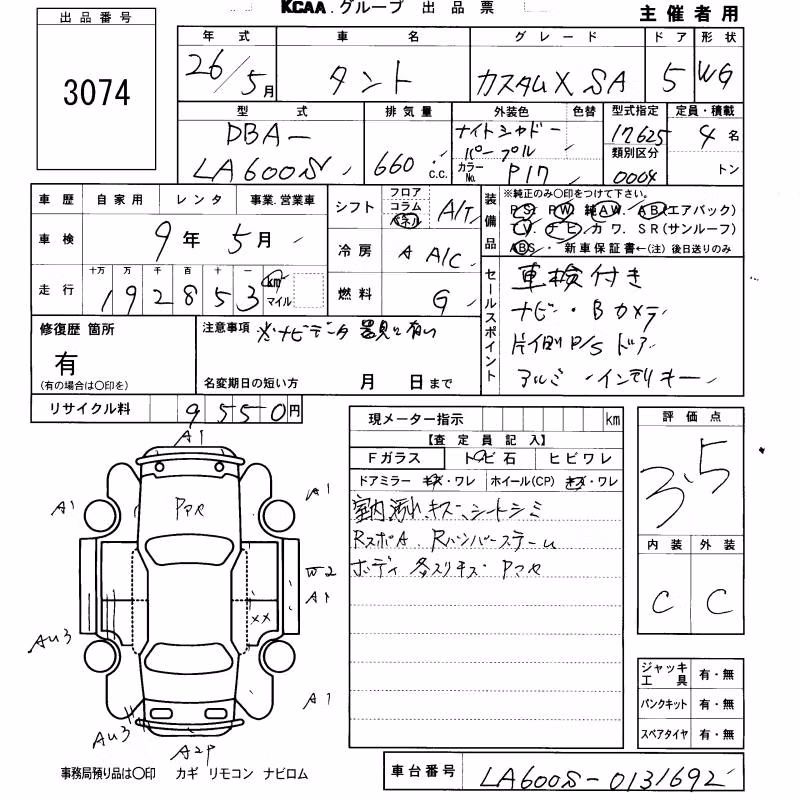 KCAA.グループ 出品票
主催者用
出品番号
3074
年式 車名 グレード ドア 形状
26/5月 タント カスタムX SA 5 WG
型式 排気量 外装色 色替 型式指定 定員・積載
DBA- ナイトシャドー 17625 4名
パープル 類別区分
LA600S 660 c.c. カラーNo. P17 0004 トン
車歴 自家用 レンタ 事業.営業車
シフト フロア コラム パネル A/T
装備品 ※純正のみ○印をつけて下さい。
PS. PW 純AW. AB(エアバック)
TV. ナビ カワ. SR(サンルーフ)
ABS・ 新車保証書←(注) 後日送りのみ
車検 9年 5月
冷房 A A/C
走行 十万 万 千 百 十 一
192853 km マイル
燃料 G
セールスポイント
車検付き
ナビ・Bカメラ
片側P/Sドア
アルミ・インテリキー
修復歴 箇所
有
(有の場合は○印を)
注意事項 ※ナビデータ
名変期日の短い方 月 日まで
リサイクル料 9550円
現メーター指示 km
【査定員記入】
Fガラス トビ石 ヒビワレ
ドアミラー キズ・ワレ ホイール(CP) キズ・ワレ
室内汚れ キズ、シートシミ
RスポA. Rバンパーステーム
ボディ 各スリキズ・Pマメ
評価点
3.5
内装 外装
C C
A1
A1
A1
Pマメ
W2
A1
XX
AU3
A1
AU3
A2P
ジャッキ工具 有・無
パンクキット 有・無
スペアタイヤ 有・無
事務局預り品は○印 カギ リモコン ナビロム
車台番号 LA600S-0131692